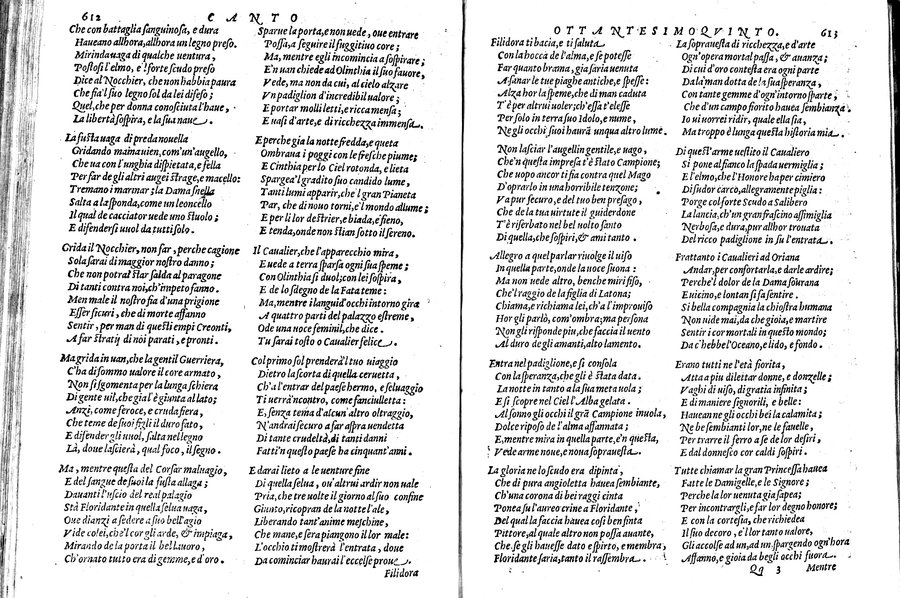 612 CANTO
Che con battaglia sanguinosa, e dura
Haueano allhora, allhora un legno preso.
Mirindauaga di qualche uentura,
Postosi l'elmo, e'l forte scudo preso
Dice al Nocchier, che non habbia paura
Che fia'l suo legno sol da lei difeso;
Quel, che per donna conosciuta l'haue,
La libertà sospira, e la sua naue.
La fusta uaga di preda nouella
Gridando mainauien, com'un'augello,
Che ua con l'unghia dispietata, e fella
Per far de gli altri augei strage, e macello:
Tremano i marinar; la Dama snella
Salta a la sponda, come un leoncello
Il qual de cacciator uede uno stuolo;
E difendersi uuol da tutti solo.
Grida il Nocchier, non far, perche cagione
Sola sarai di maggior nostro danno;
Che non potrai star salda al paragone
Di tanti contra noi, ch'impeto fanno.
Men male il nostro fia d'una prigione
Esser sicuri, che di morte affanno
Sentir, per man di questi empi Creonti,
A far stratij di noi parati, e pronti.
Ma grida in uan, che la gentil Guerriera,
C'ha di sommo ualore il core armato,
Non si sgomenta per la lunga schiera
Di gente uil, che già l'è giunta al lato;
Anzi, come feroce, e cruda fiera,
Che teme de suoi figli il duro fato,
E difender gli uuol, salta nel legno
Là, doue lascierà, qual foco, il segno.
Ma, mentre questa del Corsar maluagio,
E del sangue de suoi la fusta allaga;
Dauanti l'uscio del real palagio
Stà Floridante in quella selua uaga,
Oue dianzi a sedere a suo bell'agio
Vide colei, che'l cor gli arde, & impiaga,
Mirando de la porta il bel lauoro,
Ch'ornato tutto era di gemme, e d'oro.
Sparue la porta, e non uede, oue entrare
Possa, a seguire il fuggitiuo core;
Ma, mentre egli incomincia a sospirare;
E'n uan chiede ad Olinthia il suo fauore,
Vede, ma non da cui, al cielo alzare
Vn padiglion d'incredibil ualore;
E portar molli letti, e ricca mensa;
E uasi d'arte, e di ricchezza immensa.
E perche gia la notte fredda, e queta
Ombraua i poggi con le fresche piume;
E Cinthia per lo Ciel rotonda, e lieta
Spargea'l gradito suo candido lume,
Tanti lumi apparir, che'l gran Pianeta
Par, che di nouo torni, e'l mondo allume;
E per li lor destrier, e biada, e fieno,
E tenda, onde non stian sotto il sereno.
Il Caualier, che l'apparecchio mira,
E uede a terra sparsa ogni sua speme;
Con Olinthia si duol; con lei sospira,
E de lo sdegno de la Fata teme:
Ma, mentre i languid'occhi intorno gira
A quattro parti del palazzo estreme,
Ode una noce feminil, che dice.
Tu sarai tosto o Caualier felice.
Col primo sol prenderà'l tuo uiaggio
Dietro la scorta di quella ceruetta,
Ch'a l'entrar del paese hermo, e seluaggio
Ti uerrà'ncontro, come fanciulletta:
E, senza tema d'alcun altro oltraggio,
N'andrai securo a far aspra uendetta
Di tante crudeltà, di tanti danni
Fatti'n questo paese ha cinquant'anni.
E darai lieto a le uenture fine
Di quella selua, ou'altrui ardir non uale
Pria, che tre uolte il giorno al suo confine
Giunto, ricopran de la notte l'ale,
Liberando tant'anime meschine,
Che mane, e sera piangono il lor male:
L'occhio ti mostrerà l'entrata, doue
Da cominciar hauerai l'eccelse proue.
Filidora
OTTANTESIMOQVINTO. 613
Filidora ti bacia, e ti saluta
Con la bocca de l'alma, e se potesse
Far quanto brama, gia saria uenuta
A sanar le tue piaghe antiche, e spesse:
Alza hor la speme, che di man caduta
T'è per altrui uoler; ch'essa t'elesse
Per solo in terra suo Idolo, e nume,
Ne gli occhi suoi haurà unqua altro lume.
Non lasciar l'augellin gentile, e uago,
Che'n questa impresa t'è stato Campione;
Che uopo ancor ti fia contra quel Mago
D'oprarlo in una horribile tenzone;
Va pur securo, e del tuo ben presago,
Che de la tua uirtute il guiderdone
T'è riserbato nel bel uolto santo
Di quella, che sospiri, & ami tanto.
Allegro a quel parlar riuolge il uiso
In quella parte, onde la noce suona:
Ma non uede altro, benche miri fiso,
Che'l raggio de la figlia di Latona;
Chiama, e richiama lei, ch'a l'improuiso
Hor gli parlò, com'ombra; ma persona
Non gli risponde piu, che faccia il uento
Al duro de gli amanti, alto lamento.
Entra nel padiglione, e si consola
Con la speranza, che gli è stata data.
La notte in tanto a la sua meta uola;
E si scopre nel Ciel l'Alba gelata.
Al sonno gli occhi il grã Campione inuola,
Dolce riposo de l'alma affannata;
E, mentre mira in quella parte, e'n questa,
Vede arme noue, e noua soprauesta.
La gloria ne lo scudo era dipinta,
Che di pura angioletta hauea sembiante,
Ch'una corona di bei raggi cinta
Ponea su l'aureo crine a Floridante,
Del qual la faccia hauea così ben finta
Pittore, al quale altro non possa auante,
Che, se gli hauesse dato e spirto, e membra,
Floridante saria, tanto il rassembra.
La soprauesta di ricchezza, e d'arte
Ogn'opera mortal passa, & auanza;
Di cui d'oro contesta era ogni parte
Da la man dotta de la sua speranza,
Con tante gemme d'ogn'intorno sparte,
Che d'un campo fiorito hauea sembianza.
Io ui uorrei ridir, quale ella sia,
Ma troppo è lunga questa historia mia.
Di quest'arme uestito il Caualiero
Si pone al fianco la spada uermiglia;
E l'elmo, che l'Honore ha per cimiero
Di sudor carco, allegramente piglia:
Porge col forte Scudo a Salibero
La lancia, ch'un gran frascino assimiglia
Nerbosa, e dura, pur allhor trouata
Del ricco padiglione in su l'entrata.
Frattanto i Caualieri ad Oriana
Andar, per confortarla, e darle ardire;
Perche'l dolor de la Dama soprana
E uicino, e lontan si fa sentire.
Si bella compagnia la chiostra humana
Non uide mai, da che gioia, e martire
Sentir i cor mortali in questo mondo;
Da c'hebbe l'Oceano, e lido, e fondo.
Erano tutti ne l'età fiorita,
Atta a piu dilettar donne, e donzelle;
Vaghi di uiso, di gratia infinita;
E di maniere signorili, e belle:
Haueano ne gli occhi bei la calamita;
Ne be sembianti lor, ne le fauelle,
Per trarre il ferro a se de lor desiri,
E dal donnesco cor caldi sospiri.
Tutte chiamar la gran Principessa hauea
Fatte le Damigelle, e le Signore;
Perche la lor uenuta gia sapea;
Per incontrargli, e far lor degno honore;
E con la cortesia, che richiedea
Il suo decoro, e'l lor tanto ualore,
Gli accolse ad un, ad un spargendo ogn'hora
Affanno, e gioia da begli occhi fuora.
Qq 3 Mentre